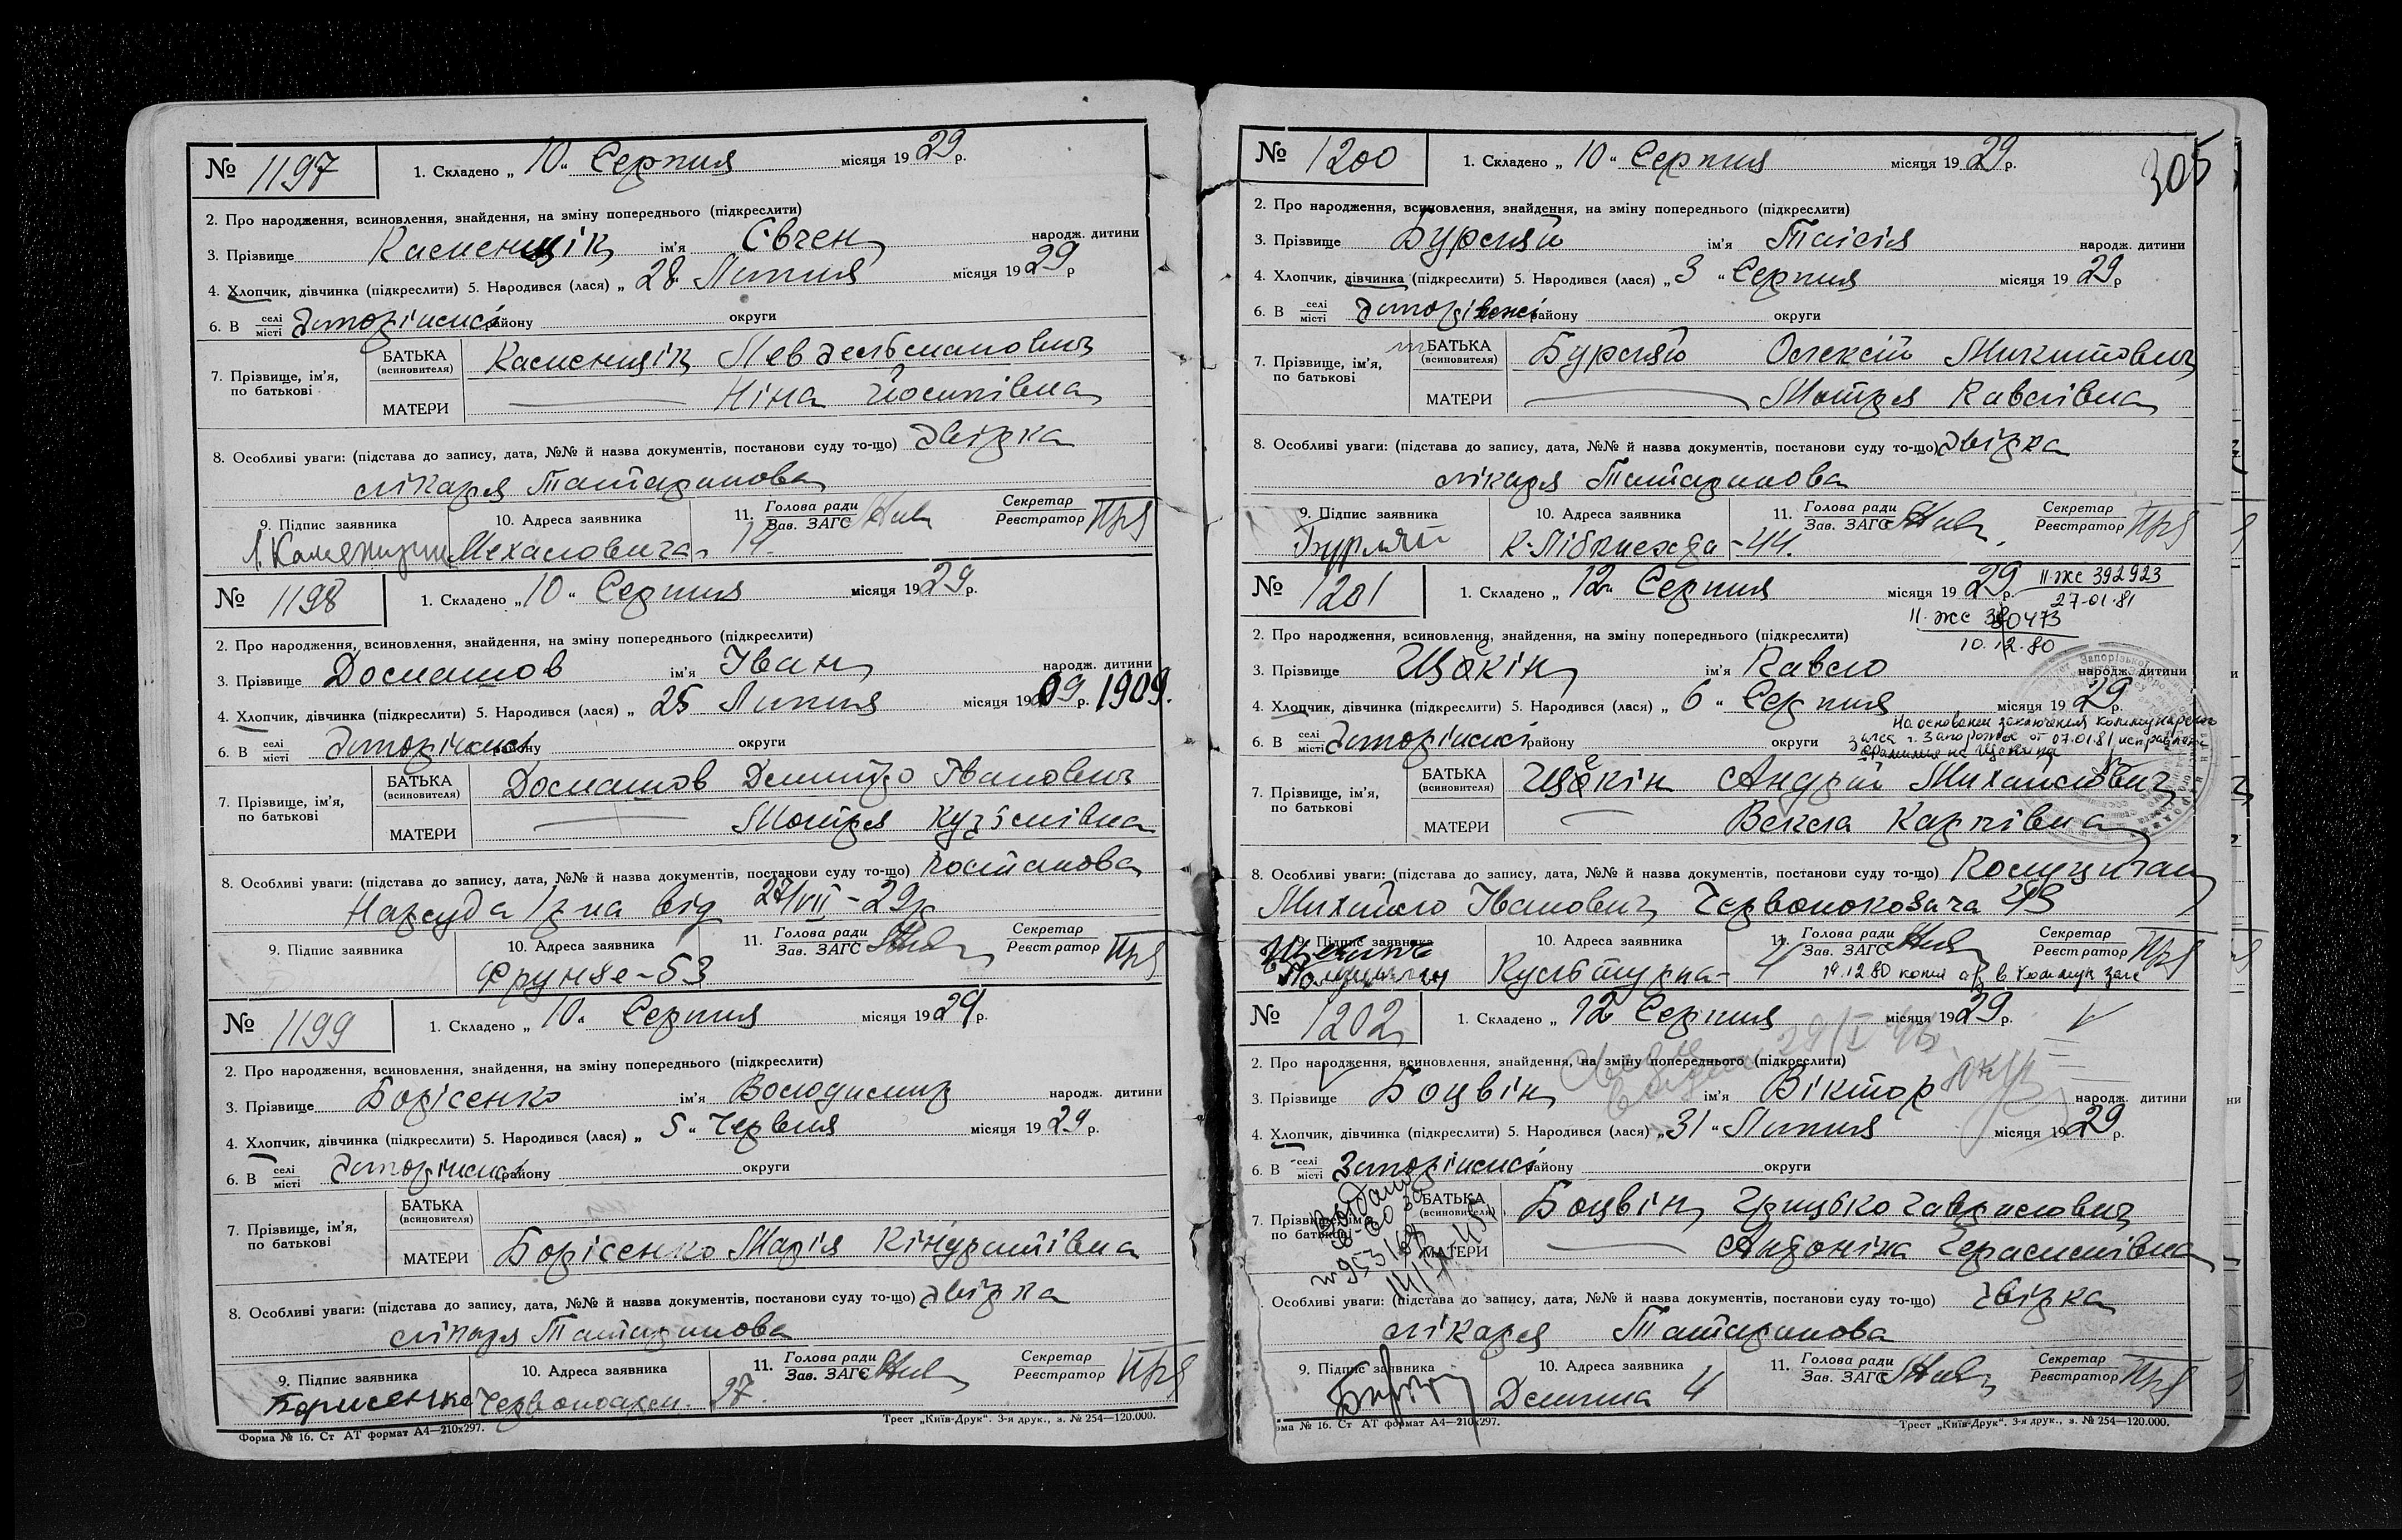 № 1197 1. Складено „ 10 “ Серпня місяця 1929 р.
2. Про народження, всиновлення, знайдення, на зміну попереднього (підкреслити)
3. Прізвище Каменщік ім'я Євген народж. дитини
4. Хлопчик, дівчинка (підкреслити) 5. Народився (лася) „ 28 Липня місяця 1929 р
6. В селі місті Запоріжжі району округи
7. Прізвище, ім'я, по батькові
БАТЬКА (всиновителя) Каменщік Лев Зельманович
МАТЕРИ Ніна Йосипівна
8. Особливі уваги: (підстава до запису, дата, №№ й назва документів, постанови суду то-що) Звірка
лікаря Татаринова
9. Підпис заявника 10. Адреса заявника 11. Голова ради Зав. ЗАГС Секретар Реєстратор
Л. 14.
№ 1198 1. Складено „ 10 “ Серпня місяця 1929 р.
2. Про народження, всиновлення, знайдення, на зміну попереднього (підкреслити)
3. Прізвище Домашов ім'я Іван народж. дитини
4. Хлопчик, дівчинка (підкреслити) 5. Народився (лася) „ 25 Липня місяця 1909 р. 1909.
6. В селі місті Запоріжжі району округи
7. Прізвище, ім'я, по батькові
БАТЬКА (всиновителя) Домашов Дмитро Іванович
МАТЕРИ Мотря Кузьмівна
8. Особливі уваги: (підстава до запису, дата, №№ й назва документів, постанови суду то-що) постанова
Нарсуда 1 р-на від 27/VII-29р
9. Підпис заявника 10. Адреса заявника 11. Голова ради Зав. ЗАГС Секретар Реєстратор
Фрунзе-53
№ 1199 1. Складено „ 10 “ Серпня місяця 1929 р.
2. Про народження, всиновлення, знайдення, на зміну попереднього (підкреслити)
3. Прізвище Борісенко ім'я Володимир народж. дитини
4. Хлопчик, дівчинка (підкреслити) 5. Народився (лася) „ 5 “ Червня місяця 1929 р.
6. В селі місті Запоріжжі району округи
7. Прізвище, ім'я, по батькові
БАТЬКА (всиновителя)
МАТЕРИ Борісенко Марія Кіндратівна
8. Особливі уваги: (підстава до запису, дата, №№ й назва документів, постанови суду то-що) Звірка
лікаря Татаринова
9. Підпис заявника 10. Адреса заявника 11. Голова ради Зав. ЗАГС Секретар Реєстратор
Борисенко Червоноарм. 27.
Форма № 16. Ст АТ формат А4—210х297. Трест „Київ-Друк“. 3-я друк., з. № 254—120.000.
305
№ 1200 1. Складено „ 10 “ Серпня місяця 1929 р.
2. Про народження, всиновлення, знайдення, на зміну попереднього (підкреслити)
3. Прізвище Бурляй ім'я Таісія народж. дитини
4. Хлопчик, дівчинка (підкреслити) 5. Народився (лася) „ 3 “ Серпня місяця 1929 р
6. В селі місті Запоріжжі району округи
7. Прізвище, ім'я, по батькові
БАТЬКА (всиновителя) Бурляй Олексій Микитович
МАТЕРИ Мотря Павлівна
8. Особливі уваги: (підстава до запису, дата, №№ й назва документів, постанови суду то-що) Звірка
лікаря Татаринова
9. Підпис заявника 10. Адреса заявника 11. Голова ради Зав. ЗАГС Секретар Реєстратор
Бурляй К. Лібкнехта-44.
№ 1201 1. Складено „ 12 “ Серпня місяця 1929 р. II-ЖС 392923
27-01-81
II-ЖС 380473
10.12.80
2. Про народження, всиновлення, знайдення, на зміну попереднього (підкреслити)
3. Прізвище Щокін ім'я Павло народж. дитини
4. Хлопчик, дівчинка (підкреслити) 5. Народився (лася) „ 6 “ Серпня місяця 1929 р.
На основании заключения коммунарск
загса г. Запорожье от 07.01.81 исправлена
фамилия на Щекина
6. В селі місті Запоріжжі району округи
7. Прізвище, ім'я, по батькові
БАТЬКА (всиновителя) Щокін Андрій Михайлович
МАТЕРИ Векла Карпівна
8. Особливі уваги: (підстава до запису, дата, №№ й назва документів, постанови суду то-що)
Михайло Іванович Червонокозача 43
9. Підпис заявника 10. Адреса заявника 11. Голова ради Зав. ЗАГС Секретар Реєстратор
Культурна- 4 19.12.80 копия а/з в Коммун загс
№ 1202 1. Складено „ 12 Серпня місяця 1929 р.
2. Про народження, всиновлення, знайдення, на зміну попереднього (підкреслити)
3. Прізвище Боцвін ім'я Віктор народж. дитини
4. Хлопчик, дівчинка (підкреслити) 5. Народився (лася) „ 31 “ Липня місяця 1929 р.
6. В селі місті Запоріжжі району округи
7. Прізвище, ім'я, по батькові
БАТЬКА (всиновителя) Боцвін Грицько Гаврилович
МАТЕРИ Антоніна Герасимівна
8. Особливі уваги: (підстава до запису, дата, №№ й назва документів, постанови суду то-що) Звірка
лікаря Татаринова
9. Підпис заявника 10. Адреса заявника 11. Голова ради Зав. ЗАГС Секретар Реєстратор
4
рма № 16. Ст АТ формат А4—210х297. Трест „Київ-Друк“. 3-я друк., з. № 254—120.000.